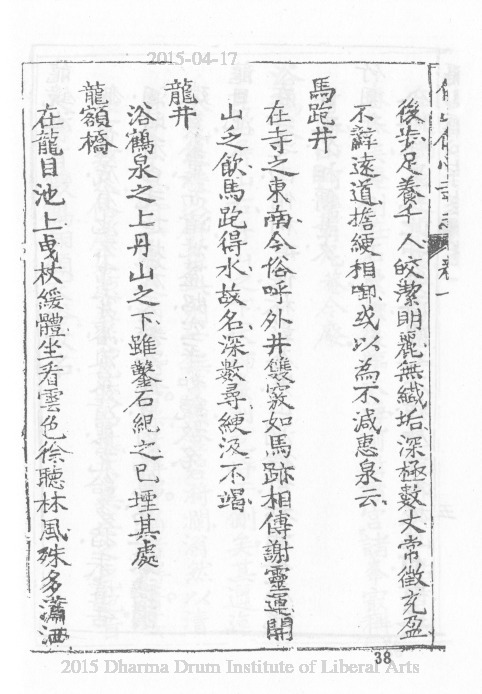 2015-04-17
卷一
後步足養千人皎潔明麗無纖垢深極數丈常徵充盈
不辭遠道擔綆相啣或以為不減惠泉云
馬跑井
在寺之東南今俗呼外井雙竅如馬跡相傳謝靈運開
山乏飲馬跑得水故名深數尋綆汲不竭
龍井
浴鶴泉之上丹山之下雖鑿石紀之已堙其處
龍額橋
在龍目池上曵杖緩體坐看雲色徐聽林風殊多瀟洒
38
2015 Dharma Drum Institute of Liberal Arts